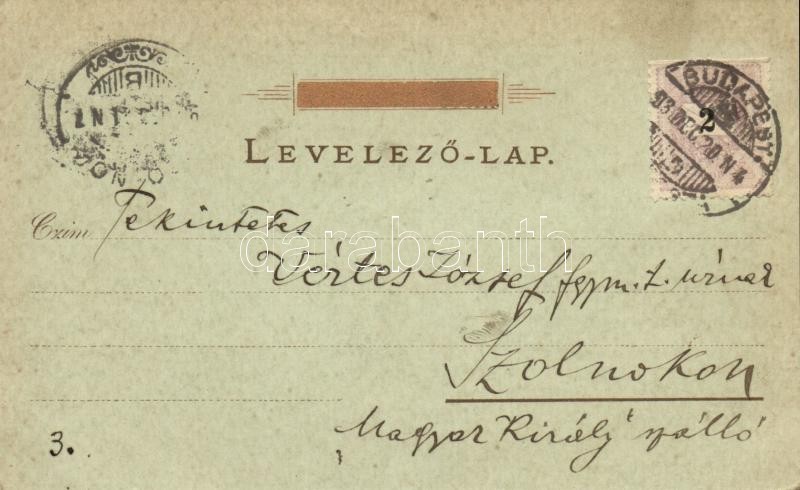 BUDAPEST
93 DEC. 20 N 4
2
LEVELEZŐ-LAP.
Czim Tekintetes
Vértes József fegym. t. úrnak
Szolnokon
"Magyar Király" szálló
3.
darabanth.com